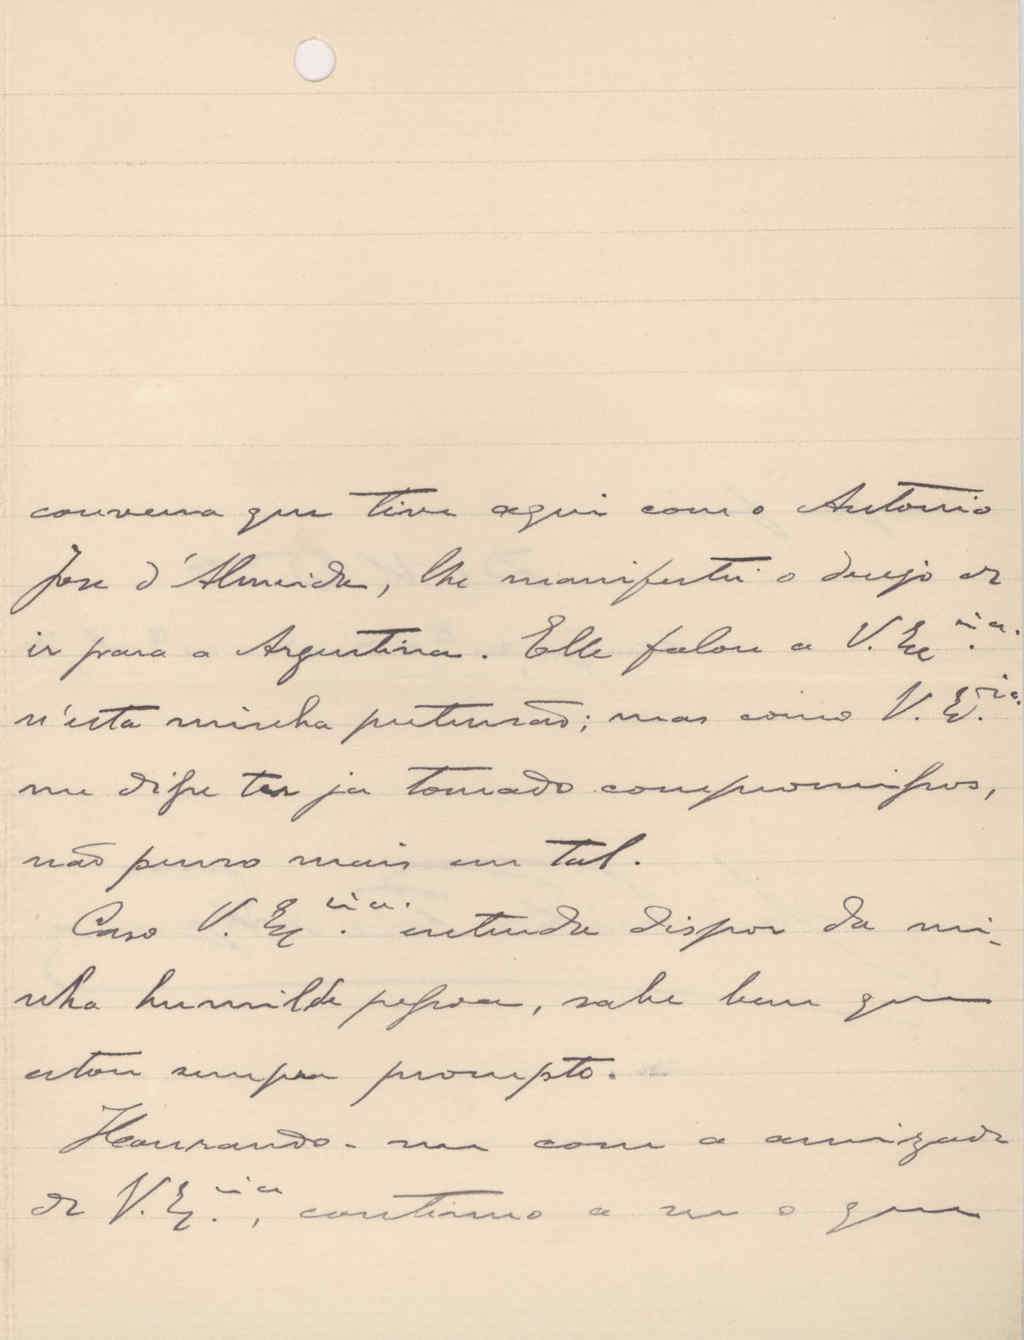 conversa que tive aqui com o Antonio
Jose d'Almeida, lhe manifestei o desejo de
ir para a Argentina. Elle falou a V. Ex.cia.
n'esta minha pretensão; mas como V. Ex.cia.
me disse ter ja tomado compromissos,
não penso mais em tal.
Caso V. Ex.cia. entenda dispor da mi-
nha humilde pessoa, sabe bem que
estou sempre prompto.
Honrando-me com a amizade
de V. Ex.cia, continuo a ser o que